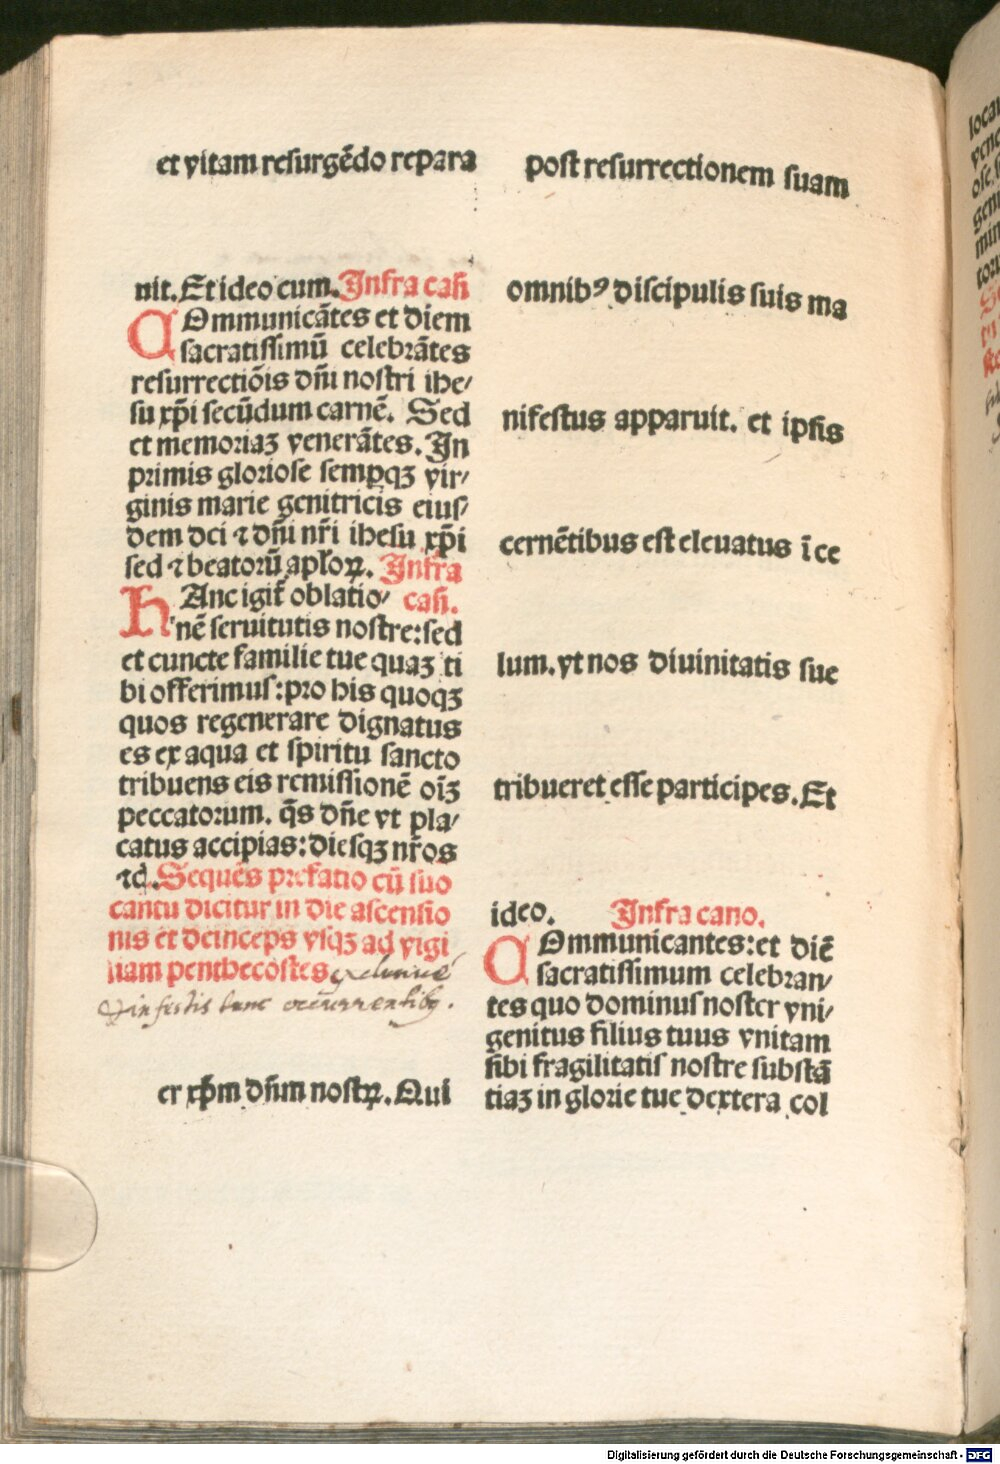 et vitam resurgēdo repara
nit. Et ideo cum. Infra cañ
COmmunicātes et diem
sacratissimū celebrātes
resurrectiōis dñi nostri ihe/
su xp̄i secūdum carnē. Sed
et memoriaꝫ venerātes. In
primis gloriose semꝑqꝫ vir/
ginis marie genitricis eius/
dem dei ⁊ dñi nr̄i ihesu xp̄i
sed ⁊ beatorū apl'oꝝ. Infra
HAnc igit̄ oblatio/ cañ.
nē seruitutis nostre: sed
et cuncte familie tue quaꝫ ti
bi offerimus: pro his quoqꝫ
quos regenerare dignatus
es ex aqua et spiritu sancto
tribuens eis remissionē oīꝫ
peccatorum. q̄s dn̄e vt pla/
catus accipias: diesqꝫ nr̄os
⁊d. Sequēs prefatio cū suo
cantu dicitur in die ascensio
nis et deinceps vsqꝫ ad vigi
liam penthecostes
in festis tunc occurrentibꝰ.
er xp̄m dn̄m nostꝝ. Qui
post resurrectionem suam
omnibꝰ discipulis suis ma
nifestus apparuit. et ipsis
cernētibus est eleuatus ī ce
lum. vt nos diuinitatis sue
tribueret esse participes. Et
ideo. Infra cano.
COmmunicantes: et diē
sacratissimum celebran/
tes quo dominus noster vni/
genitus filius tuus vnitam
sibi fragilitatis nostre substā
tiaꝫ in glorie tue dextera col
loca
vene
Digitalisierung gefördert durch die Deutsche Forschungsgemeinschaft - DFG